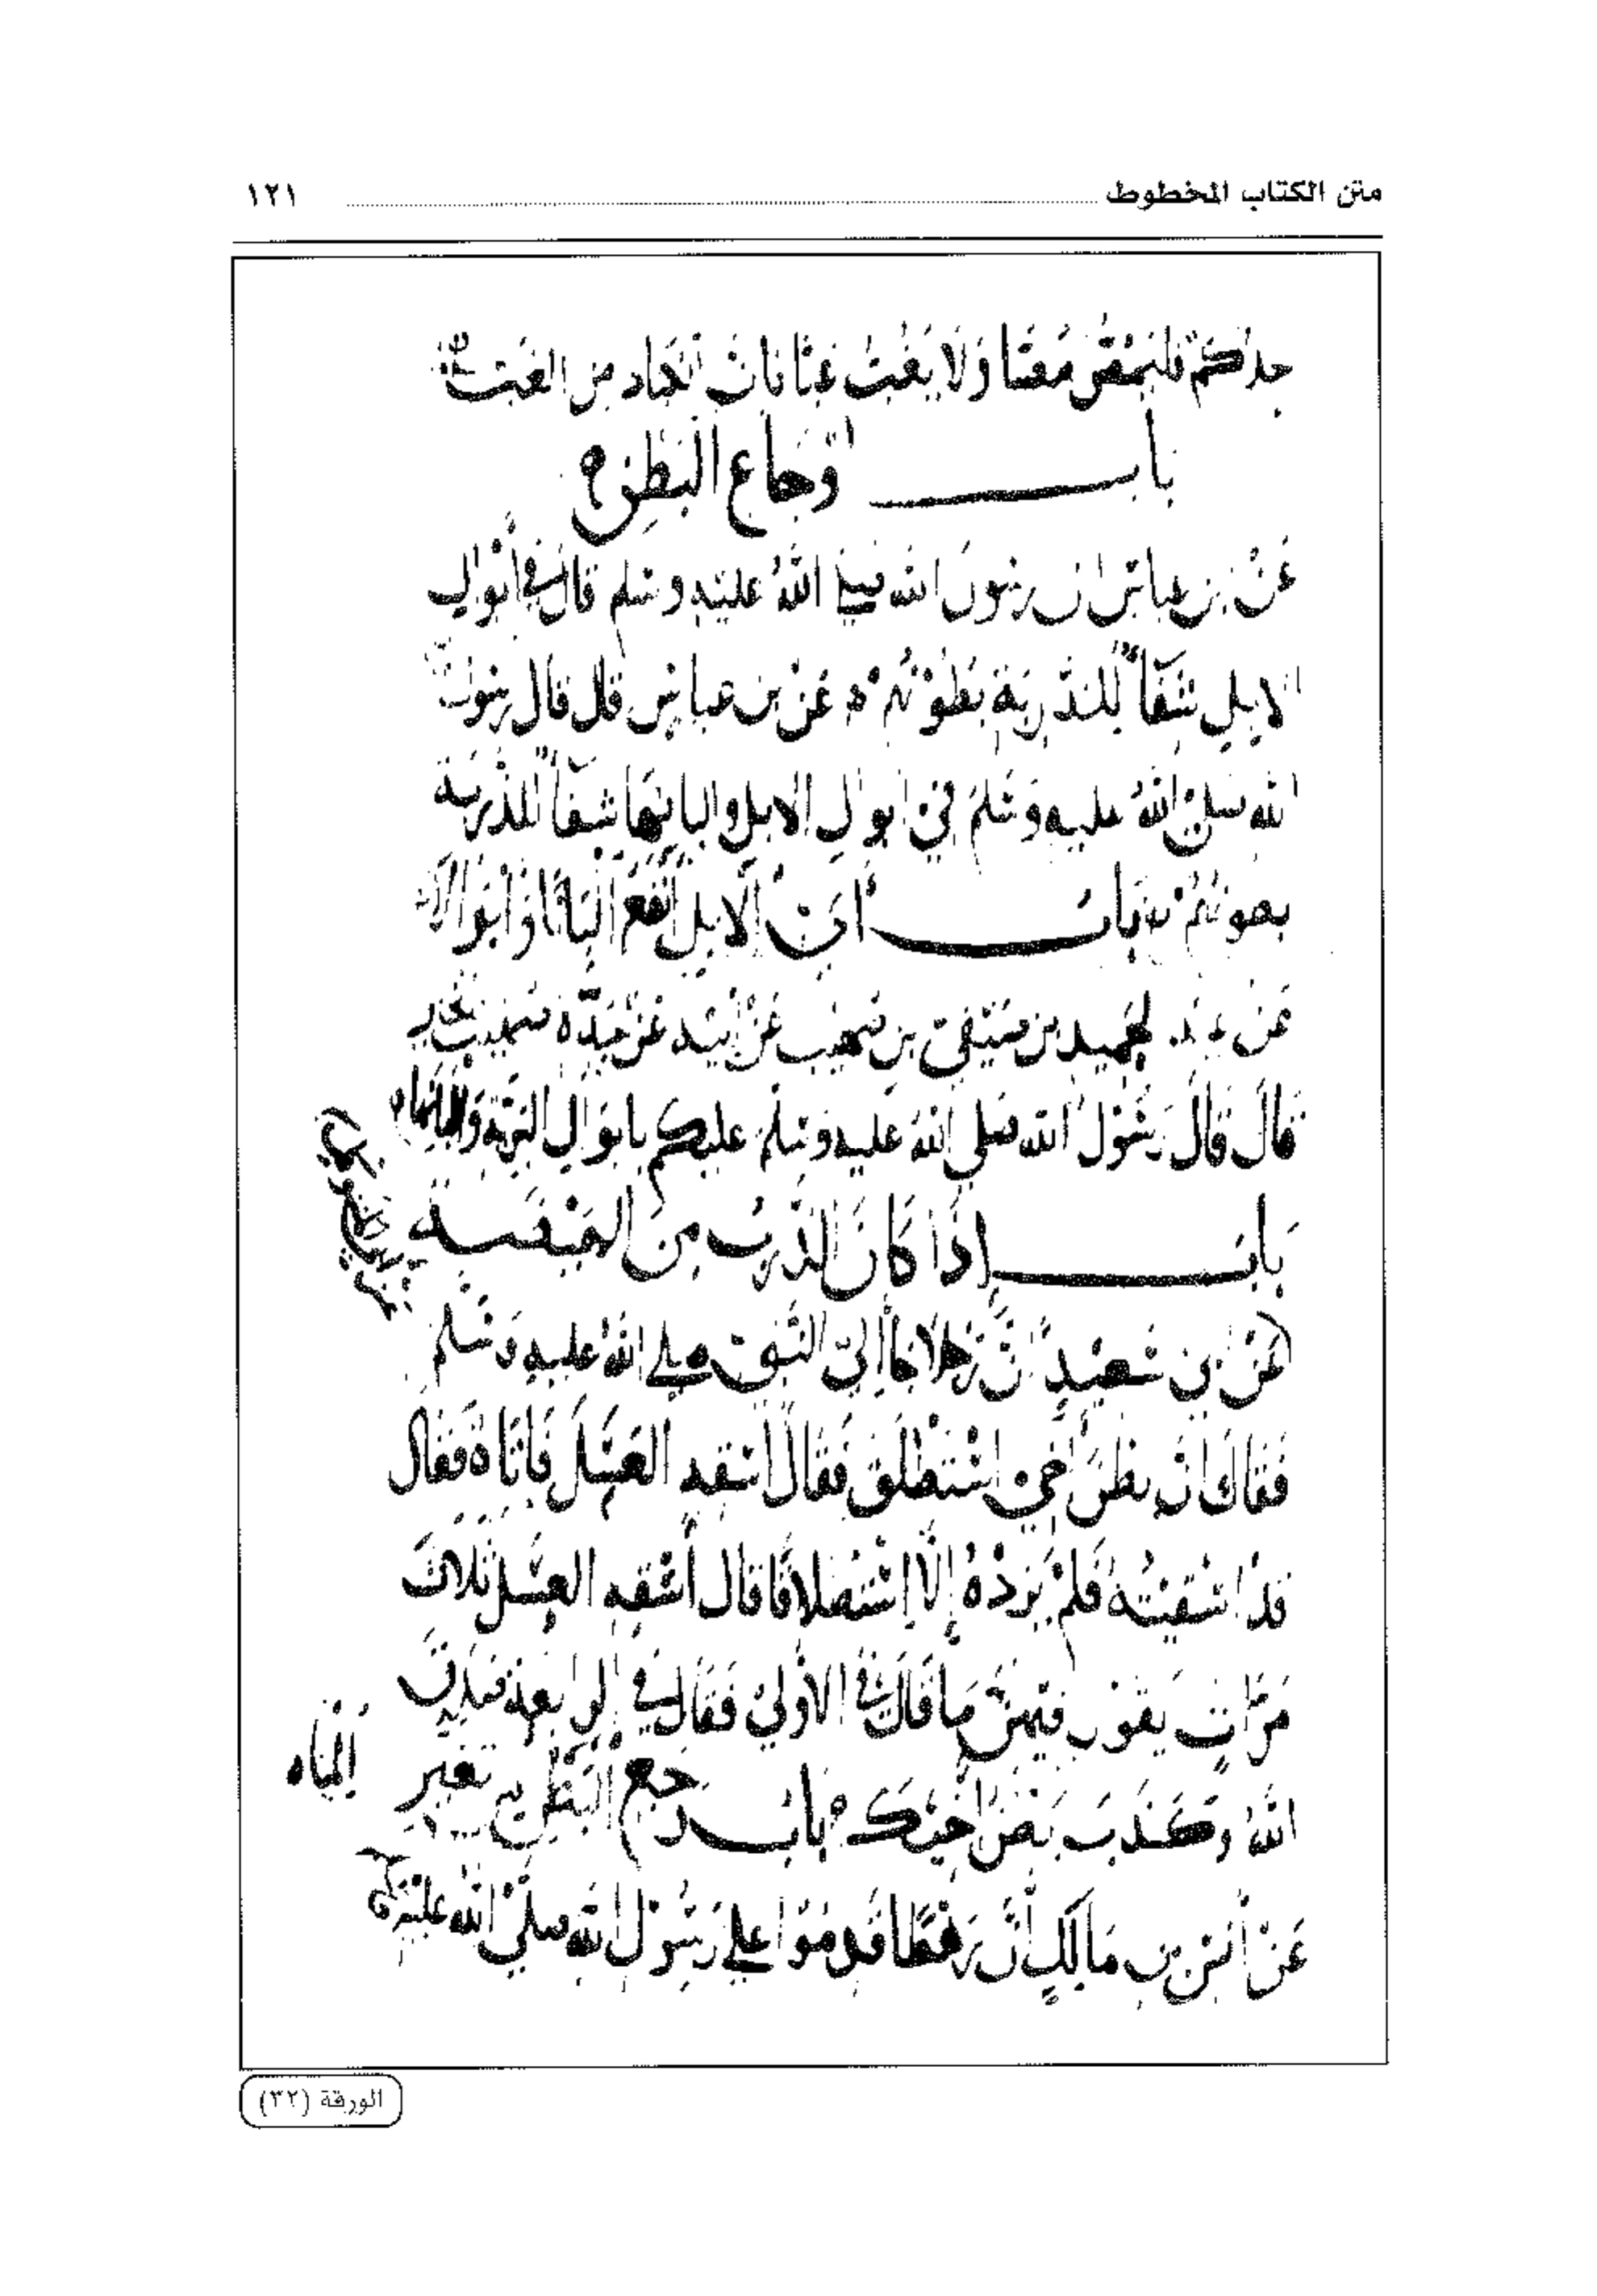 متن الكتاب المخطوط ١٢١
حدكم فليمص مصا ولا يعب عبا فان الكباد من العب
باب اوجاع البطن
عن بن عباس ان رسول الله صلى الله عليه وسلم قال في أبوال
الابل شفاً للذربة بطونهم عن بن عباس قل قال رسول
الله صلى الله عليه وسلم في ابوال الابل والبانها شفاً للذربة
بطونهم باب اي الابل أنفع البانا وأبوالا
عن عبد الحميد بن صيفي بن صهيب عن أبيه عن جده صهيب الخير
قال قال رسول الله صلى الله عليه وسلم عليكم بابوال البرية والبانها
باب إذا كان الذرب من الهيضة
عن بن سعيد أن رجلا جاأ إلى النبي صلى الله عليه وسلم
فقال ان بطن أخي استطلق فقال اسقه العسل فأتاه فقال
قد اسقيته فلم يزده إلا استطلاقا قال أسقه العسل ثلاث
مرات يقول فيهن ما قال في الأولى فقال في الرابعة صدق
الله وكذب بطن أخيك باب وجع البطن من تغير
الماء
عن أنس بن مالك أن رهطا قدموا على رسول الله صلى الله عليه
الورقة (٣٢)